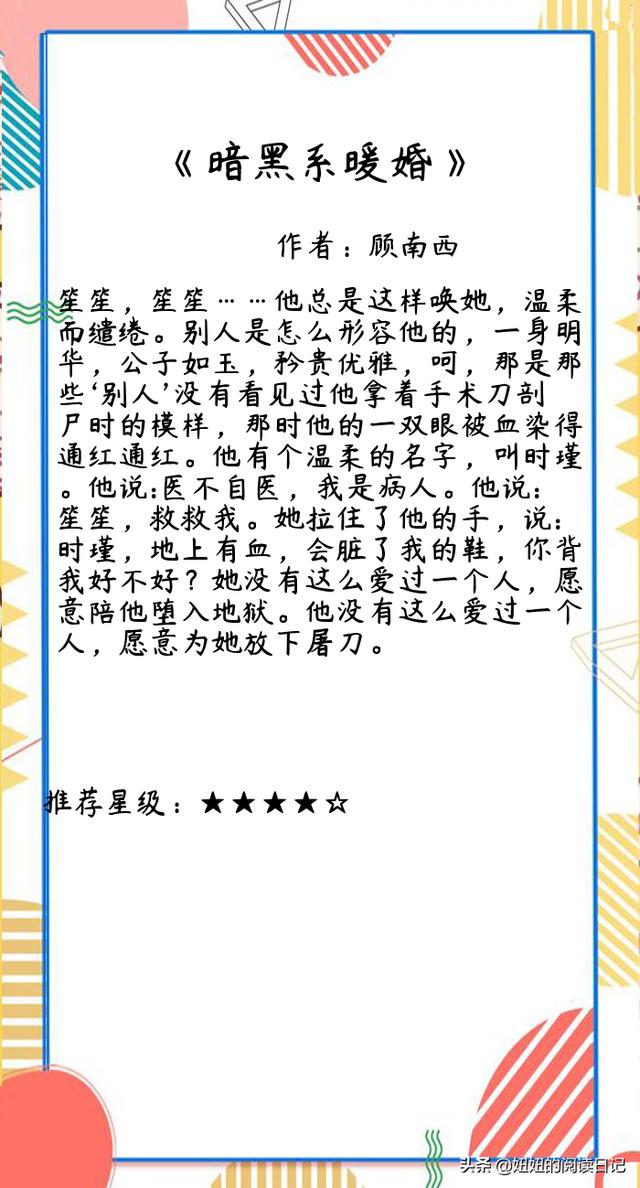 《暗黑系暖婚》
作者：顾南西
笙笙，笙笙……他总是这样唤她，温柔
而缱绻。别人是怎么形容他的，一身明
华，公子如玉，矜贵优雅，呵，那是那
些‘别人’没有看见过他拿着手术刀剖
尸时的模样，那时他的一双眼被血染得
通红通红。他有个温柔的名字，叫时瑾
。他说:医不自医，我是病人。他说：
笙笙，救救我。她拉住了他的手，说：
时瑾，地上有血，会脏了我的鞋，你背
我好不好？她没有这么爱过一个人，愿
意陪他堕入地狱。他没有这么爱过一个
人，愿意为她放下屠刀。
推荐星级：★★★★☆
头条 @妞妞的阅读日记